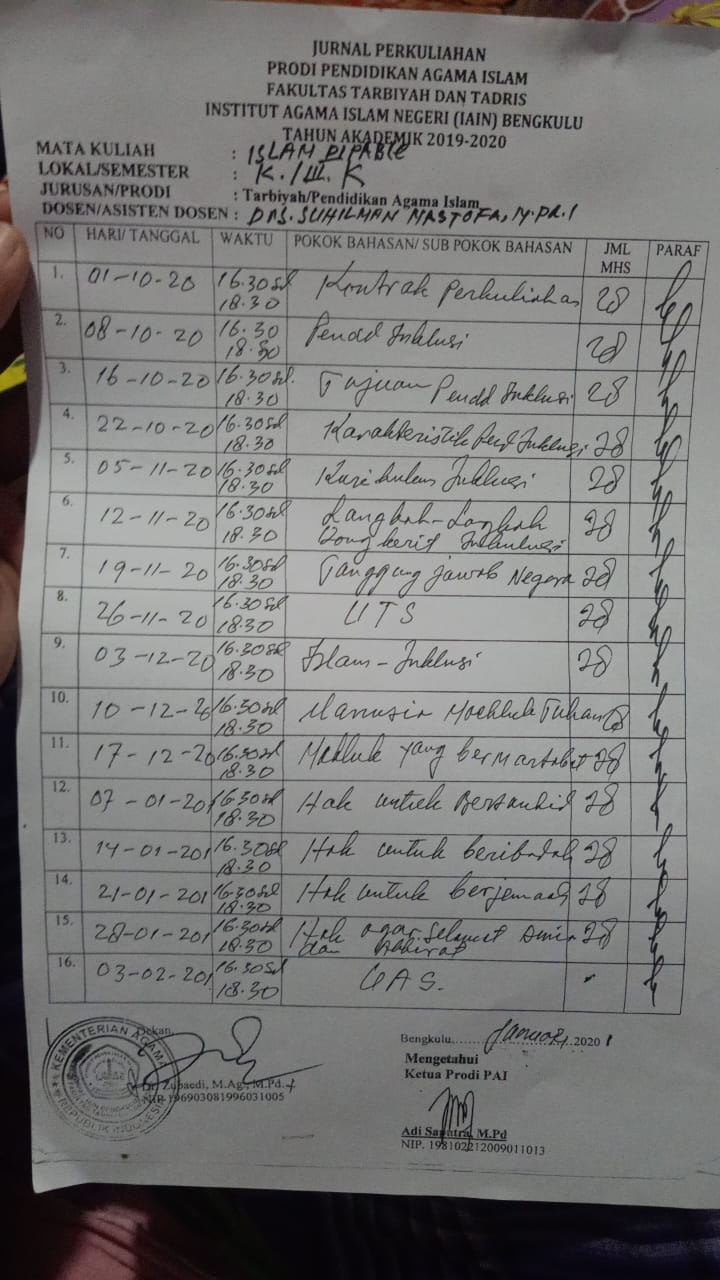 JURNAL PERKULIAHAN
PRODI PENDIDIKAN AGAMA ISLAM
FAKULTAS TARBIYAH DAN TADRIS
INSTITUT AGAMA ISLAM NEGERI (IAIN) BENGKULU
TAHUN AKADEMIK 2019-2020
MATA KULIAH : ISLAM DIPABLE
LOKAL/SEMESTER : K./III. K
JURUSAN/PRODI : Tarbiyah/Pendidikan Agama Islam
DOSEN/ASISTEN DOSEN : DRS. SUHILMAN MASTOFA, M.PD.I
NO HARI/ TANGGAL WAKTU POKOK BAHASAN/ SUB POKOK BAHASAN JML MHS PARAF
1. 01-10-20 16.30 sd 18.30 Kontrak Perkuliahan 28
2. 08-10-20 16.30 18.30 Pendd Inklusi 28
3. 16-10-20 16.30 sd. 18.30 Tujuan Pendd Inklusi 28
4. 22-10-20 16.30 sd 18.30 Karakteristik Pend Inklusi 28
5. 05-11-20 16.30 sd 18.30 Kurikulum Inklusi 28
6. 12-11-20 16.30 sd 18.30 Langkah-Langkah 28
7. 19-11-20 16.30 sd 18.30 Tanggung jawab Negara 28
8. 26-11-20 16.30 sd 18.30 UTS 28
9. 03-12-20 16.30 sd 18.30 Islam - Inklusi 28
10. 10-12-20 16.30 sd 18.30 Manusia Mochluk Tuhan 28
11. 17-12-20 16.30 sd 18.30 Mahluk yang bermartabat 28
12. 07-01-201 16.30 sd 18.30 Hak untuk 28
13. 14-01-201 16.30 sd 18.30 Hak untuk beribadah 28
14. 21-01-201 16.30 sd 18.30 Hak untuk berjemaah 28
15. 28-01-201 16.30 sd 18.30 Hak agar Selamat Dunia dan Akhirat 28
16. 03-02-201 16.30 sd 18.30 UAS.
KEMENTERIAN AGAMA
REPUBLIK INDONESIA
Dekan,
Dr. Zubaedi, M.Ag., M.Pd.
NIP 196903081996031005
Bengkulu, Januari, 2020 1
Mengetahui
Ketua Prodi PAI
Adi Saputra, M.Pd
NIP. 198102212009011013